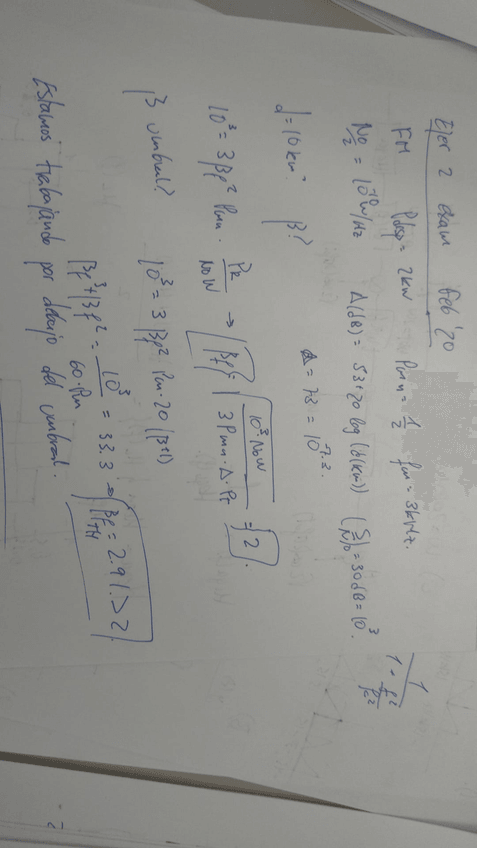 Ejer 2 exam Feb '20
FM Pdisp = 2kW Pmn = 1/2 fm = 3kHz.
No/2 = 10^-10 W/Hz Δ(dB) = 53+20 log(d(km)) (S/N)o = 30dB = 10^3.
1/(1+f²/fc²)
d = 10km. β?
Δ = 73 = 10^7.3.
10^3 = 3βf² Pmn · PR/NoW → βf = √(10^3 NoW/(3Pmn·Δ·PT)) = 2.
β umbral? 10^3 = 3βf² Pmn·20(β+1)
βf³+βf² = 10^3/(60·Pmn) = 33.3 → βf TH = 2.91 > 2
Estamos trabajando por debajo del umbral.
2